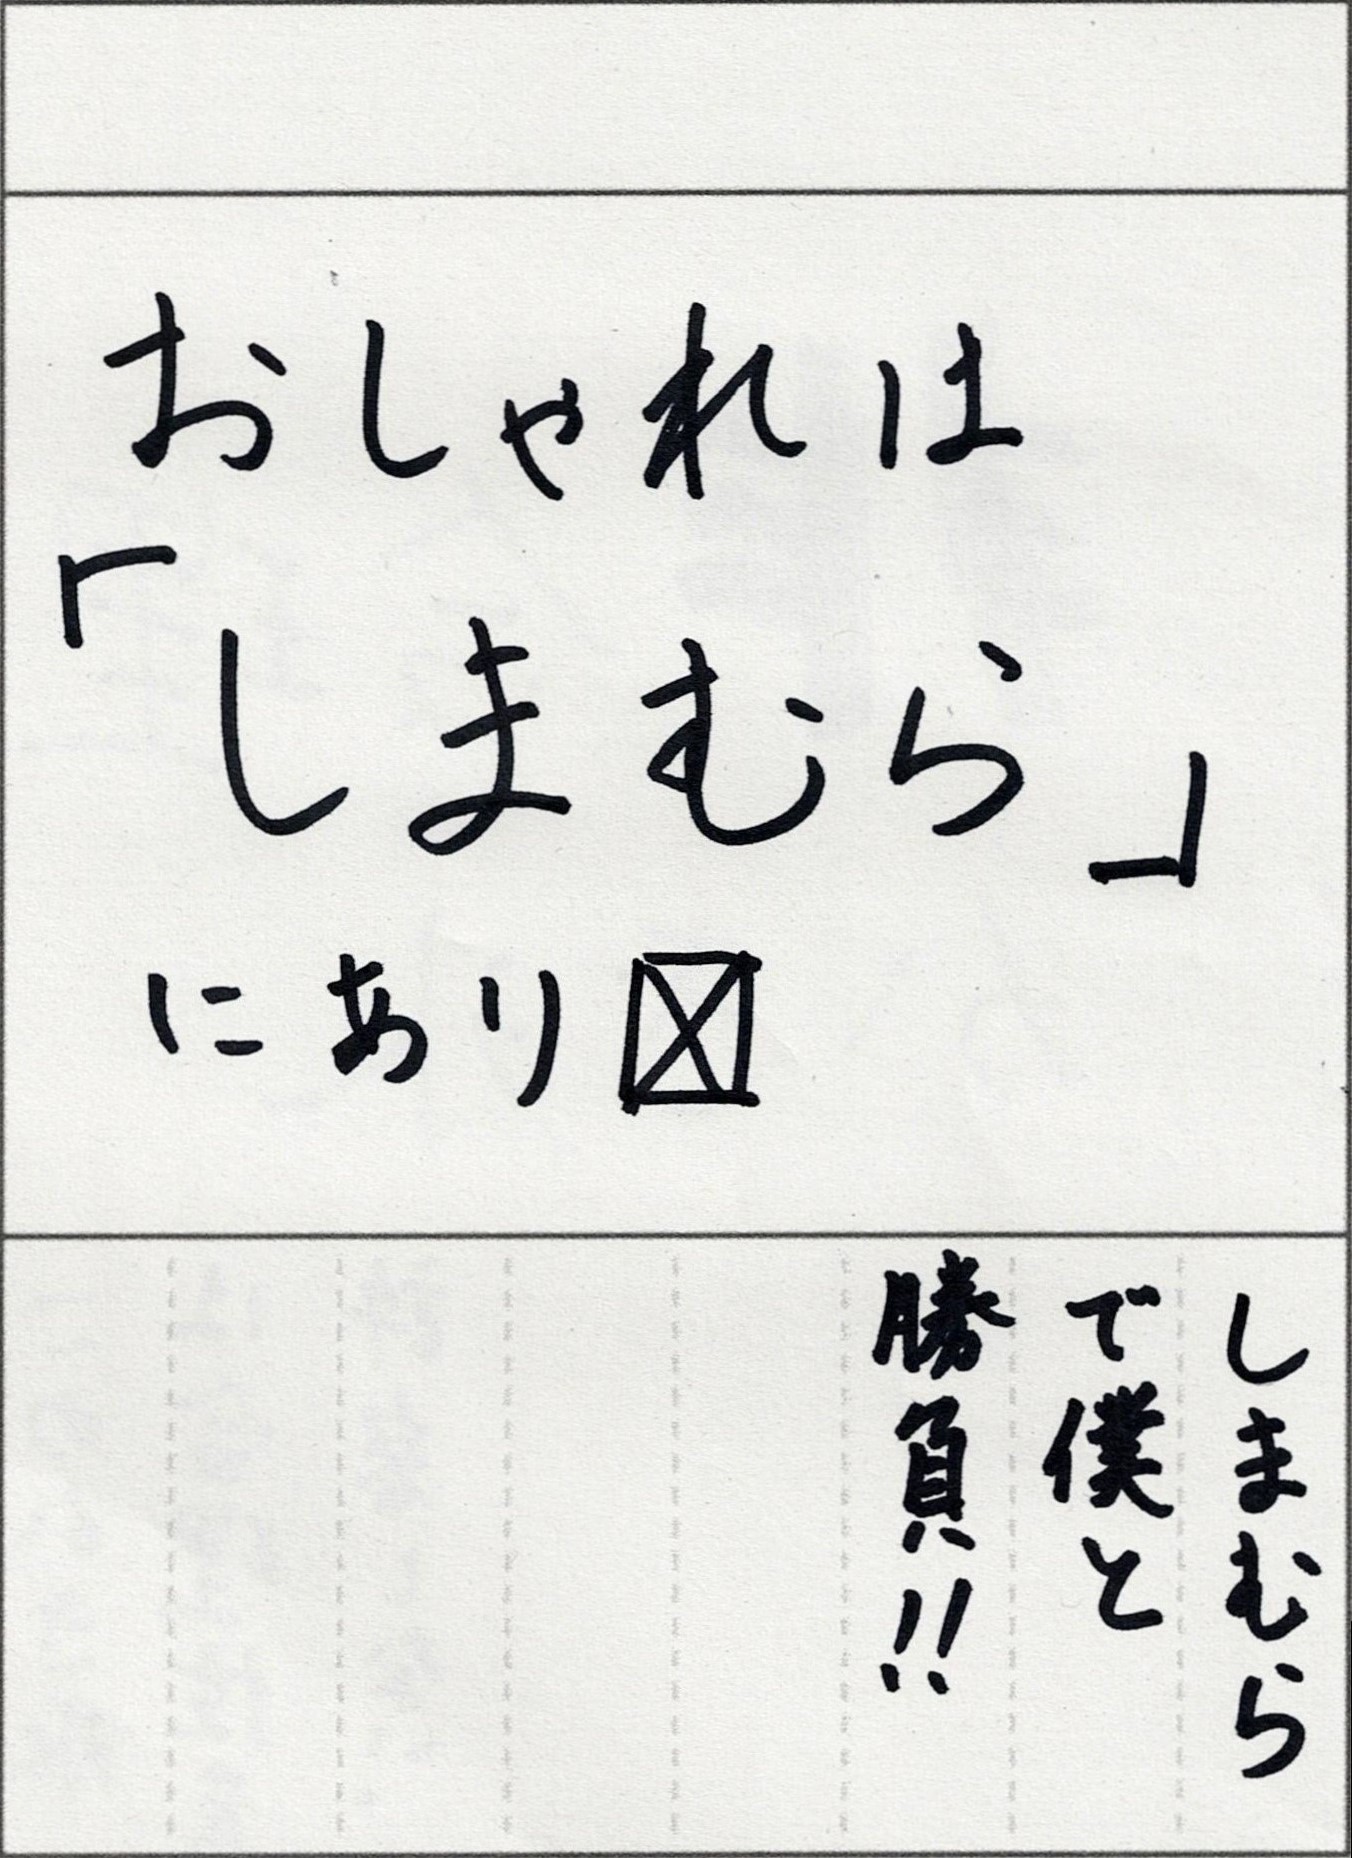 おしゃれは
「しまむら」
にあり
しまむら
で僕と
勝負!!